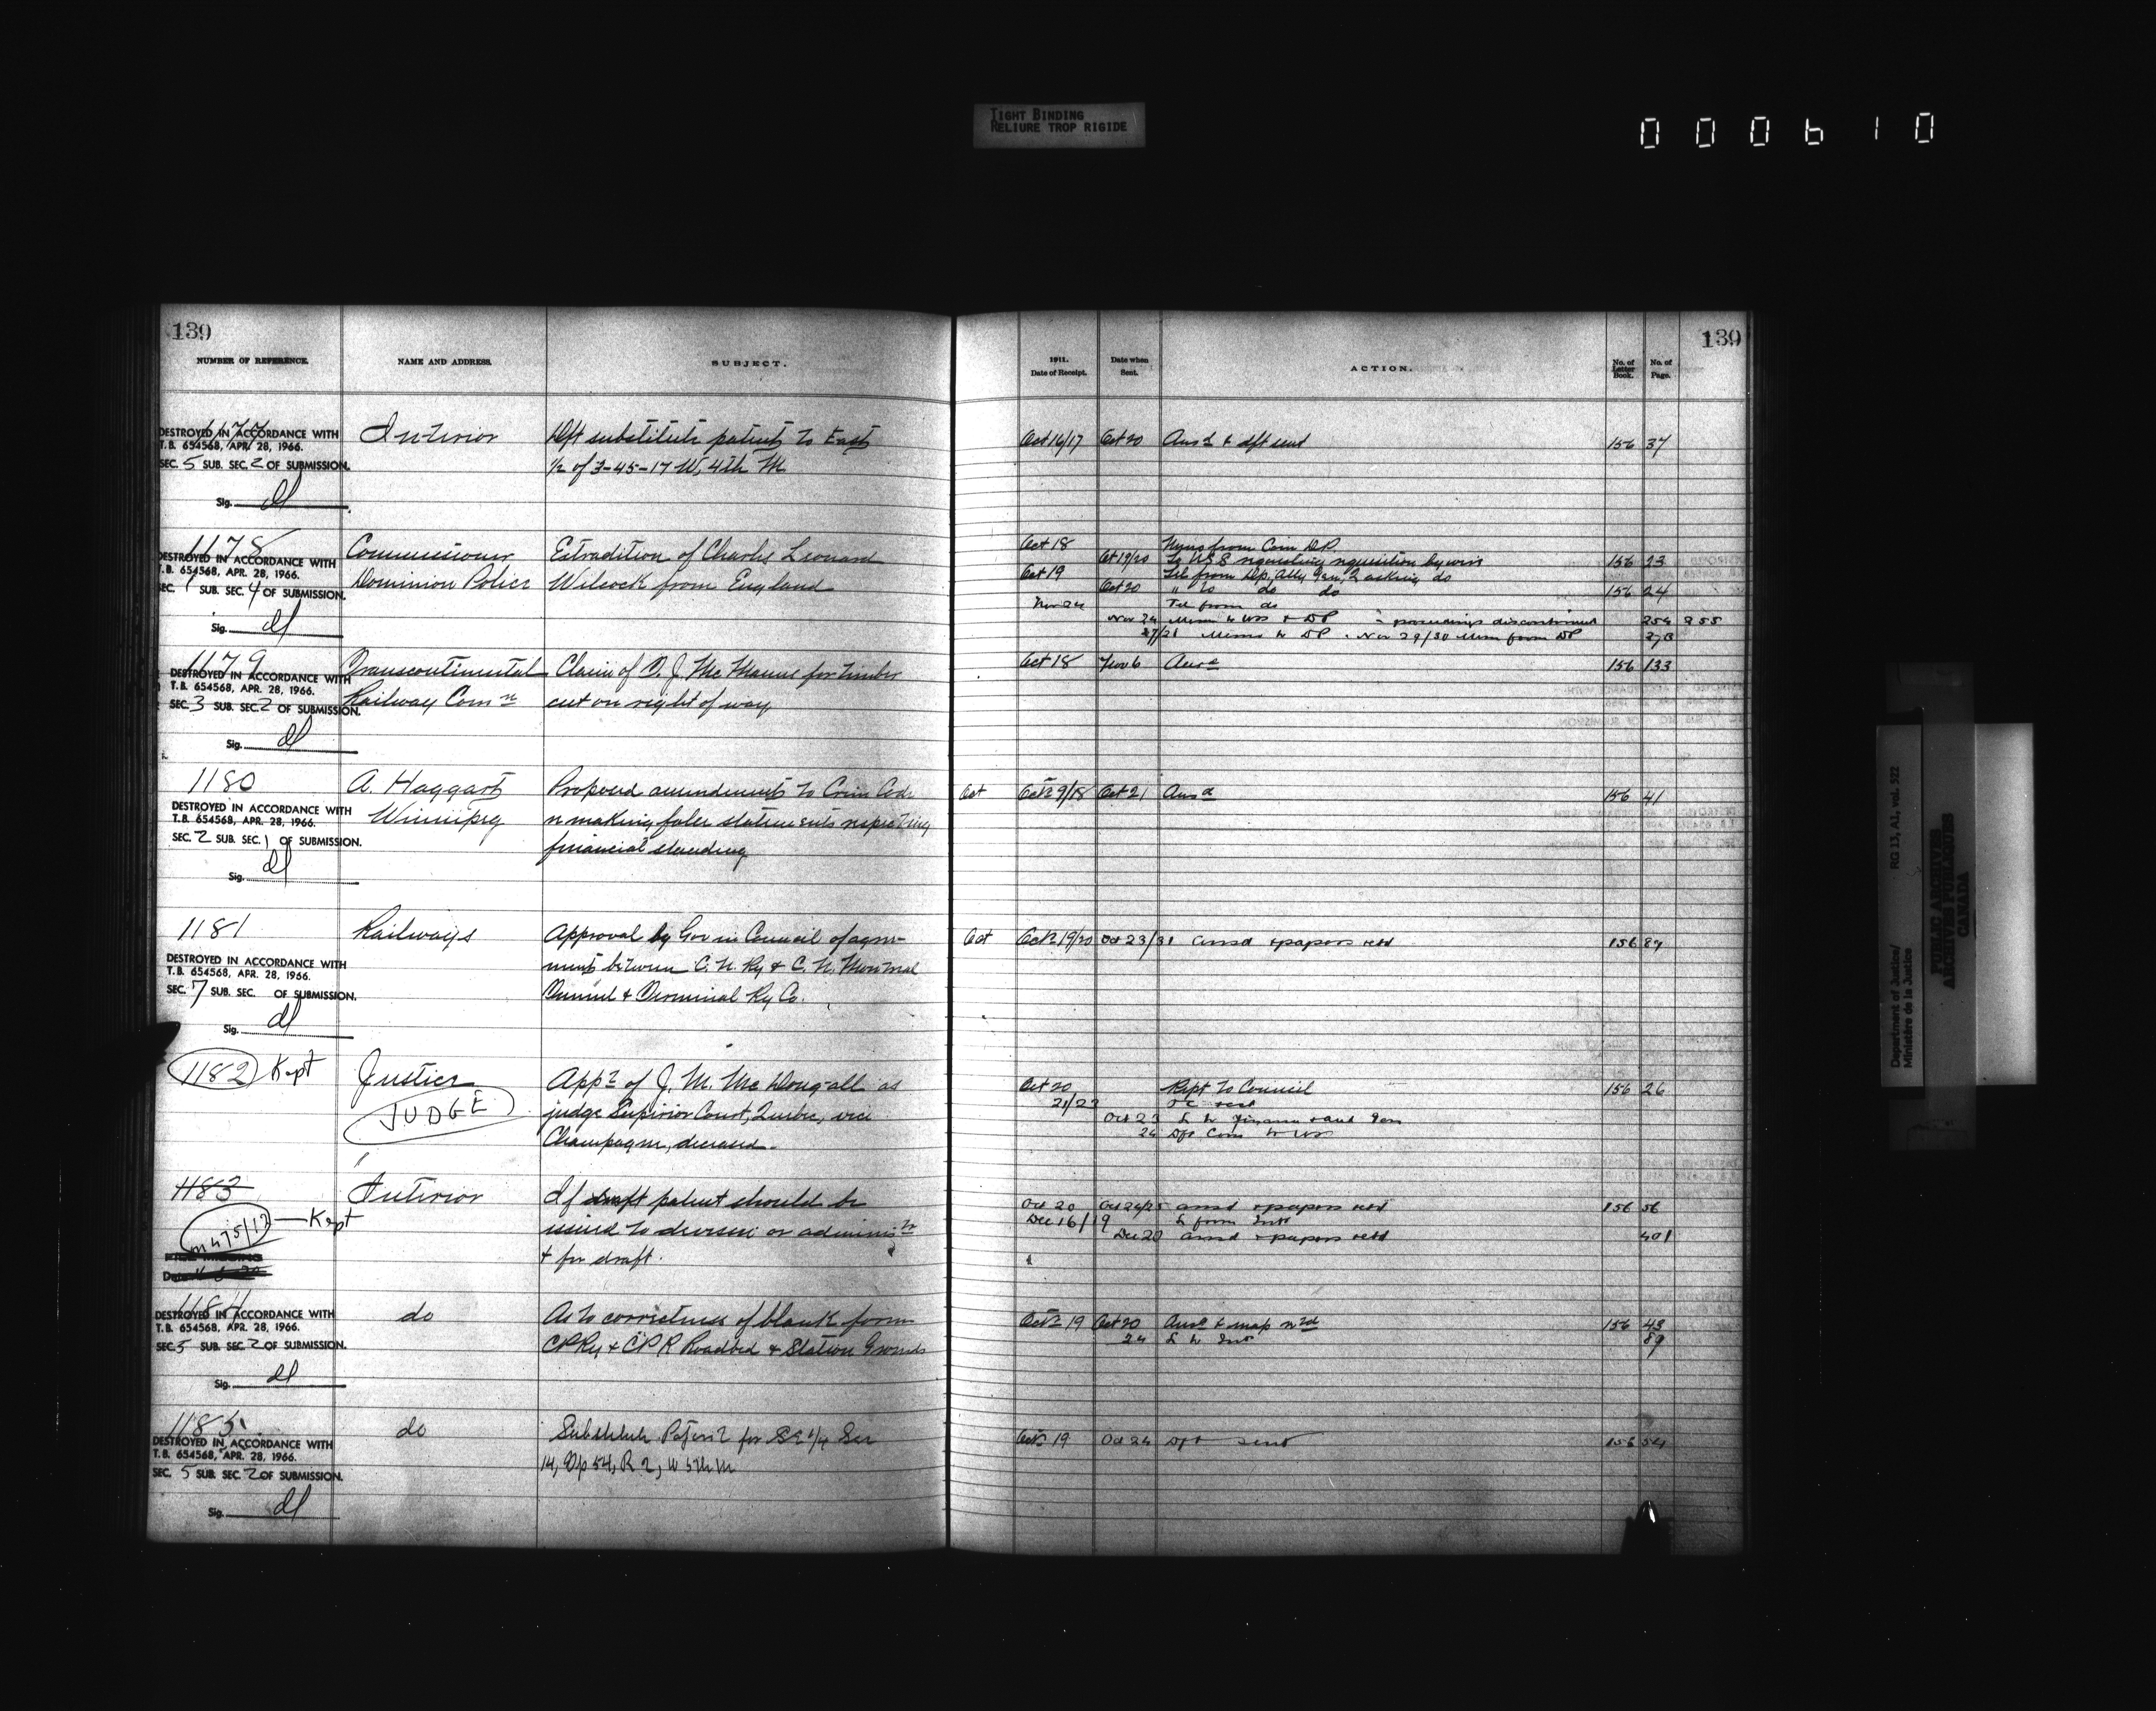 TIGHT BINDING
RELIURE TROP RIGIDE
000610
139
NUMBER OF REFERENCE.
NAME AND ADDRESS.
SUBJECT.
1177
DESTROYED IN ACCORDANCE WITH
T.B. 654568, APR. 28, 1966.
SEC. 5 SUB. SEC. 2 OF SUBMISSION.
Sig.
Interior
Dft substitute patent to East
1/2 of 3-45-17 W, 4th M
1178
DESTROYED IN ACCORDANCE WITH
T.B. 654568, APR. 28, 1966.
SEC. 1 SUB. SEC. 4 OF SUBMISSION.
Sig.
Commissioner
Dominion Police
Extradition of Charles Leonard
Wilcock from England
1179
DESTROYED IN ACCORDANCE WITH
T.B. 654568, APR. 28, 1966.
SEC. 3 SUB. SEC. 2 OF SUBMISSION.
Sig.
Transcontinental
Railway Comn
Claim of J. McManus for timber
cut on right of way
1180
DESTROYED IN ACCORDANCE WITH
T.B. 654568, APR. 28, 1966.
SEC. 2 SUB. SEC. 1 OF SUBMISSION.
Sig.
A. Haggart
Winnipeg
Proposed amendments to Crim Code
re making false statements respecting
financial standing
1181
DESTROYED IN ACCORDANCE WITH
T.B. 654568, APR. 28, 1966.
SEC. 7 SUB. SEC. OF SUBMISSION.
Sig.
Railways
Approval by Gov in Council of agree-
ment between C. N. Ry & C. N. Montreal
Tunnel & Terminal Ry Co.
1182 Kept
Justice
JUDGE
Appt of J. M. McDougall as
judge Superior Court, Quebec, vice
Champagne, deceased.
1183
M475/12 — Kept
Interior
If draft patent should be
issued to devisee or administr
& for draft.
1184
DESTROYED IN ACCORDANCE WITH
T.B. 654568, APR. 28, 1966.
SEC. 5 SUB. SEC. 2 OF SUBMISSION.
Sig.
do
As to correctness of blank form
CPRy & CPR Roadbed & Station Grounds
1185
DESTROYED IN ACCORDANCE WITH
T.B. 654568, APR. 28, 1966.
SEC. 5 SUB. SEC. 2 OF SUBMISSION.
Sig.
do
Substitute Patent for SE 1/4 Sec
14, Tp 54, R 2, W 5th M
139
1911.
Date of Receipt.
Date when
Sent.
ACTION.
No. of
Letter
Book.
No. of
Page.
Oct 16/17 Oct 20 Ansd & dft sent 156 37
Oct 18 from Com DP.
Oct 19/20 To USS requesting requisition by wire 156 23
Oct 19 Tel from Dp. Atty Gen, asking do
Oct 20 " to do do 156 24
Nov 24 Tel from do
Nov 24 Memo to USS & DP proceedings discontinued 254 255
27/28 Memo to DP. Nov 29/30 Mem from DP
Oct 18 Nov 6 Ansd 156 133
Oct Oct 9/18 Oct 21 Ansd 156 41
Oct Oct 19/20 Oct 23/31 ansd & papers retd 156 89
Oct 20 Rept to Council 156 26
21/23 OC recd
Oct 23 L to Finance & Aud Gen
24 Dft Com to USS
Oct 20 Oct 24/25 ansd & papers retd 156 56
Dec 16/19 L from Int
Dec 20 ansd & papers retd 401
Oct 19 Oct 20 Ansd & map retd 156 43
24 L to Int 89
Oct 19 Oct 24 Dft sent 156 54
Department of Justice/
Ministère de la Justice
RG 13, A1, vol. 522
PUBLIC ARCHIVES
ARCHIVES PUBLIQUES
CANADA